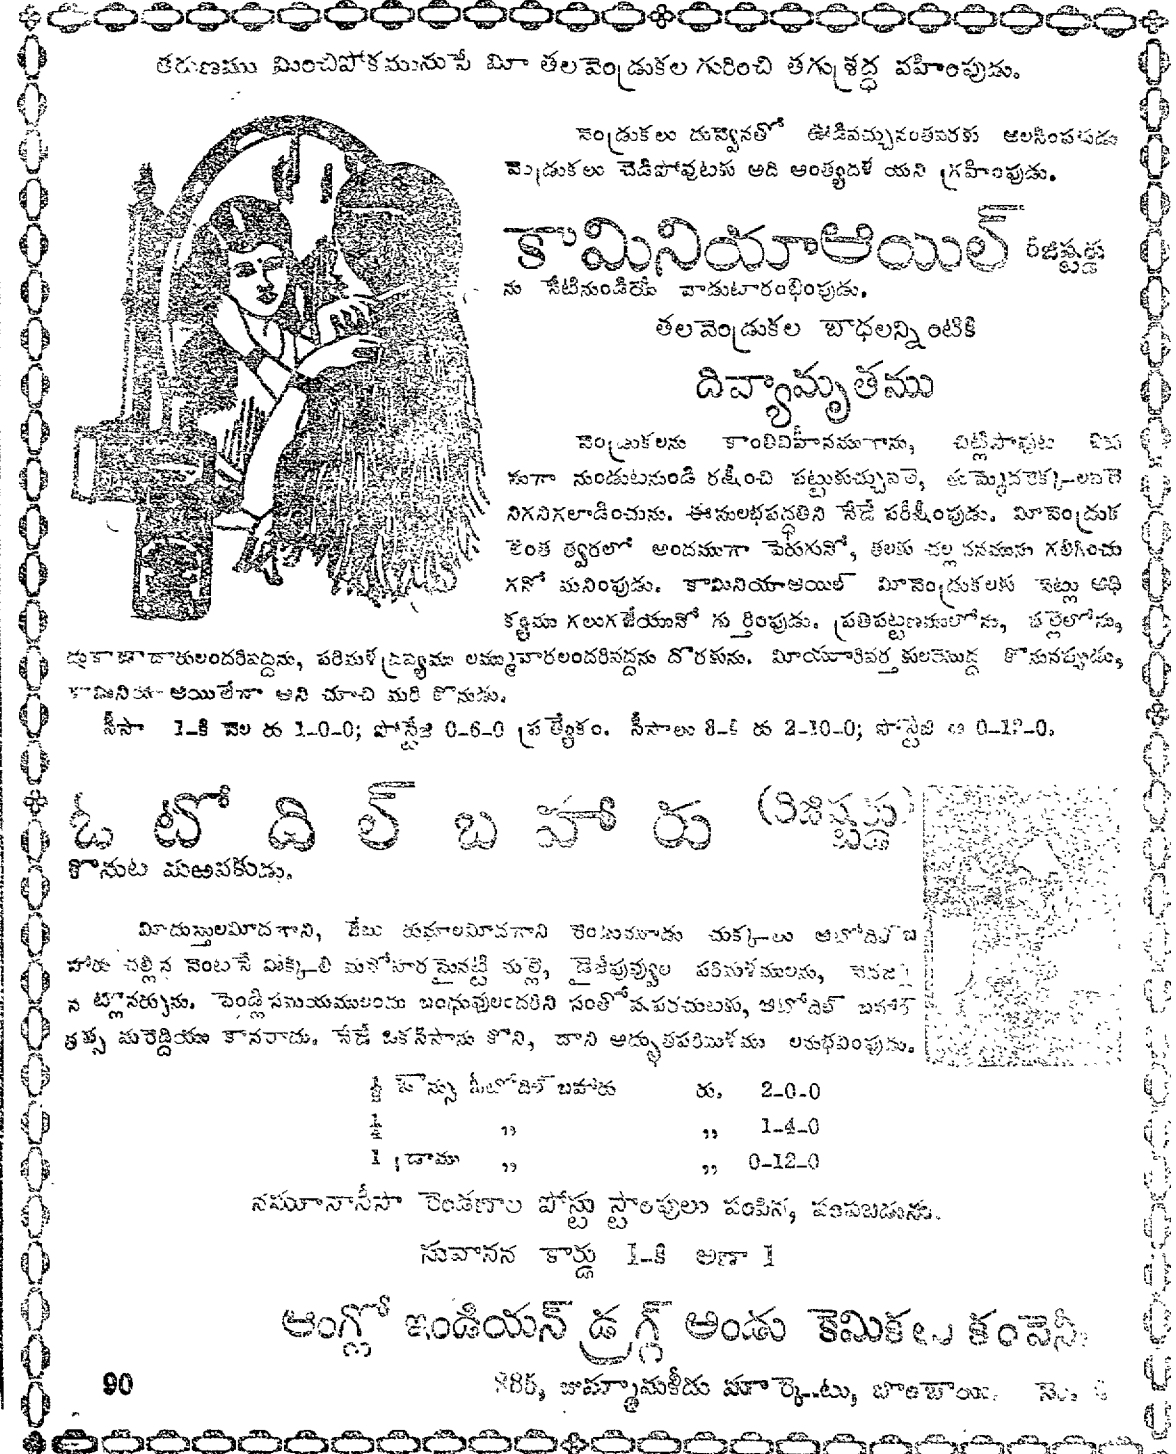 తరుణము మించిపోకమునుపే మీ తలవెండ్రుకల గురించి తగు శ్రద్ధ వహింపుడు.
వెండ్రుకలు దువ్వెనతో ఊడివచ్చునంతవరకు ఆలసింపకుడు
వెండ్రుకలు చెడిపోవుటకు అది అంత్యదశ యని గ్రహింపుడు.
కామినియాఆయిల్ రిజిష్టర్డు
ను నేటినుండియే వాడుటారంభింపుడు.
తలవెండ్రుకల బాధలన్నింటికి
దివ్యామృతము
వెండ్రుకలను కాంతివిహీనముగాను, చిట్లిపోవుట
కుగా నుండుటనుండి రక్షించి పట్టుకుచ్చువలె, తుమ్మెదరెక్కలవలె
నిగనిగలాడించును. ఈసులభపద్ధతిని నేడే పరీక్షింపుడు. మీవెండ్రుక
లెంత త్వరలో అందముగా పెరుగునో, తలకు చల్లదనమును గలిగించు
గనో మనింపుడు. కామినియాఆయిల్ మీవెండ్రుకలకు ఎట్లు ఆధి
క్యము గలుగజేయునో గుర్తింపుడు. ప్రతిపట్టణములోను, పల్లెలోను,
దుకాణదారులందరివద్దను, పరిమళద్రవ్యము లమ్మువారలందరివద్దను దొరకును. మీయూరివర్తకులవద్ద కొనునప్పుడు,
కామినియా ఆయిలేనా అని చూచి మరి కొనుడు.
సీసా 1-కి వెల రు 1-0-0; పోస్టేజి 0-6-0 ప్రత్యేకం. సీసాలు 3-కి రు 2-10-0; పోస్టేజి 0-12-0.
ఓటోదిల్‌బహారు (రిజిష్టర్డు)
కొనుట మఱవకుడు.
మీదుస్తులమీదగాని, జేబు రుమాలమీదగాని రెండుమూడు చుక్కలు ఆటోదిల్ బ
హారు చల్లిన వెంటనే మిక్కిలి మనోహరమైనట్టి మల్లె, డైజీపువ్వుల పరిమళములను,
పెండ్లిసమయములందు బంధువులందరిని సంతోషపరచుటకు, ఆటోదిల్ బహార్
తప్ప మరెద్దియు కానరాదు. నేడే ఒకసీసాను కొని, దాని అద్భుతపరిమళము లనుభవింపుడు.
½ ఔన్సు ఓటోదిల్‌బహారు రు. 2-0-0
¼ ,, ,, 1-4-0
1 డ్రాము ,, ,, 0-12-0
నమూనాసీసా రెండణాల పోస్టు స్టాంపులు పంపిన, పంపబడును.
సువాసన కార్డు 1-కి అణా 1
ఆంగ్లో ఇండియన్ డ్రగ్గ్ అండు కెమికలు కంపెనీ.
285, జుమ్మామసీదు మార్కెటు, బొంబాయి.
90